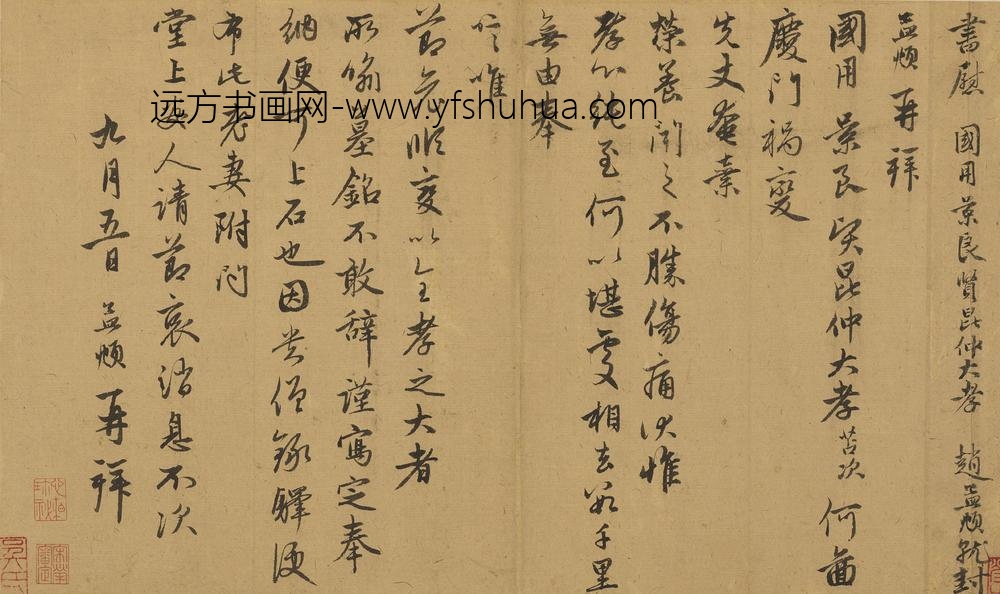 書慰 國用景良賢昆仲大孝 趙孟頫就封
孟頫再拜
國用 景良賢昆仲大孝苫次何圖
慶門禍變
先丈奄棄
榮養聞之不勝傷痛伏惟
孝心純至何以堪處相去數千里
無由奉
唁唯
節哀順變以全孝之大者
所喻墓銘不敢辭謹寫定奉
納便可上石也因 僧 驛便
布此老妻附問
堂上 人請節哀 息不次
九月五日 孟頫再拜
远方书画网-www.yfshuhua.com